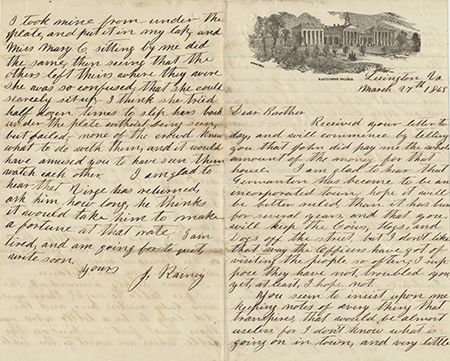 I took mine from under the
plate, and put it in my lap, and
Miss Mary C. sitting by me did
the same, then seeing that the
others left theirs where they were
she was so confused, that she could
scarcely sit up. I think she tried
half dozen times to slip hers back
under the plate without being seen,
but failed, none of the crowd knew
what to do with them, and it would
have amused you to have seen them
watch each other. I am glad to
hear that Virge has returned,
ask him how long, he thinks
it would take him to make
a fortune at that rate. I am
tired, and am going for to quit,
write soon.
Yours
J. Rainey
WASHINGTON COLLEGE.
Lexington, Va
March 27th 1868
Dear Brother
Received your letter to
day, and will commence by telling
you that John did pay me the whole
amount of the money for that
house. I am glad to hear that
has become to be an
incorporated town, hope it will
be better ruled than it has been
for several years, and that you
will keep the Cows, Hogs, and
Dogs off the street, but I don't like
that way the Officers have got of
visiting the people so often, I sup
pose they have not troubled you
yet, at least, I hope not.
You seem to insist upon me
keeping notes of every thing that
transpires, that would be almost
useless for I don't know what is
going on in town, and very little